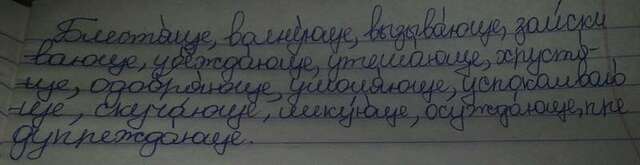 Блестя́ще, волну́юще, вызыва́юще, заи́ски
вающе, убежда́юще, утеша́юще, хрустя́-
ще, одобря́юще, умоля́юще, успока́иваю
ще, скуча́юще, лику́юще, осужда́юще, пре
дупрежда́юще.